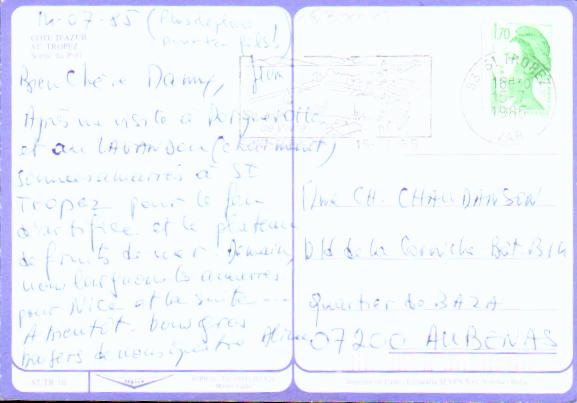 14-07-85 (Plus de place
COTE D'AZUR
ST. TROPEZ
Bien Chère Damy,
Après une visite à Porquerolles
et au LAVANDOU (charmant)
sommes amarrés à St
Tropez pour le feu
d'artifice et le plateau
de fruits de mer. Demain,
nous larguons les amarres
pour Nice et la suite ...
A bientôt. bons gros
baisers de nous quatre Aline
1,70
83 ST TROPEZ
18H30
15-7
1985
VAR
Mme CH. CHAUDANSON
Bld de la Corniche Bât B14
quartier de BAZA
07200 AUBENAS
ST.TR